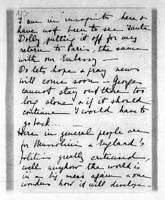 I am in incognito here &
have not been to see Tante
Dolly putting it off for my
return to Paris, the same
with our Embassy —
Do let's hope & pray news
will come soon — Georgie
cannot stay out there too
long alone & if it should
continue I would have to
go back. ...
Here in general people are
for Mussolini & England's
politics greatly criticised,
well anyhow the world is
in a big mess again & one
wonders how it will develop.